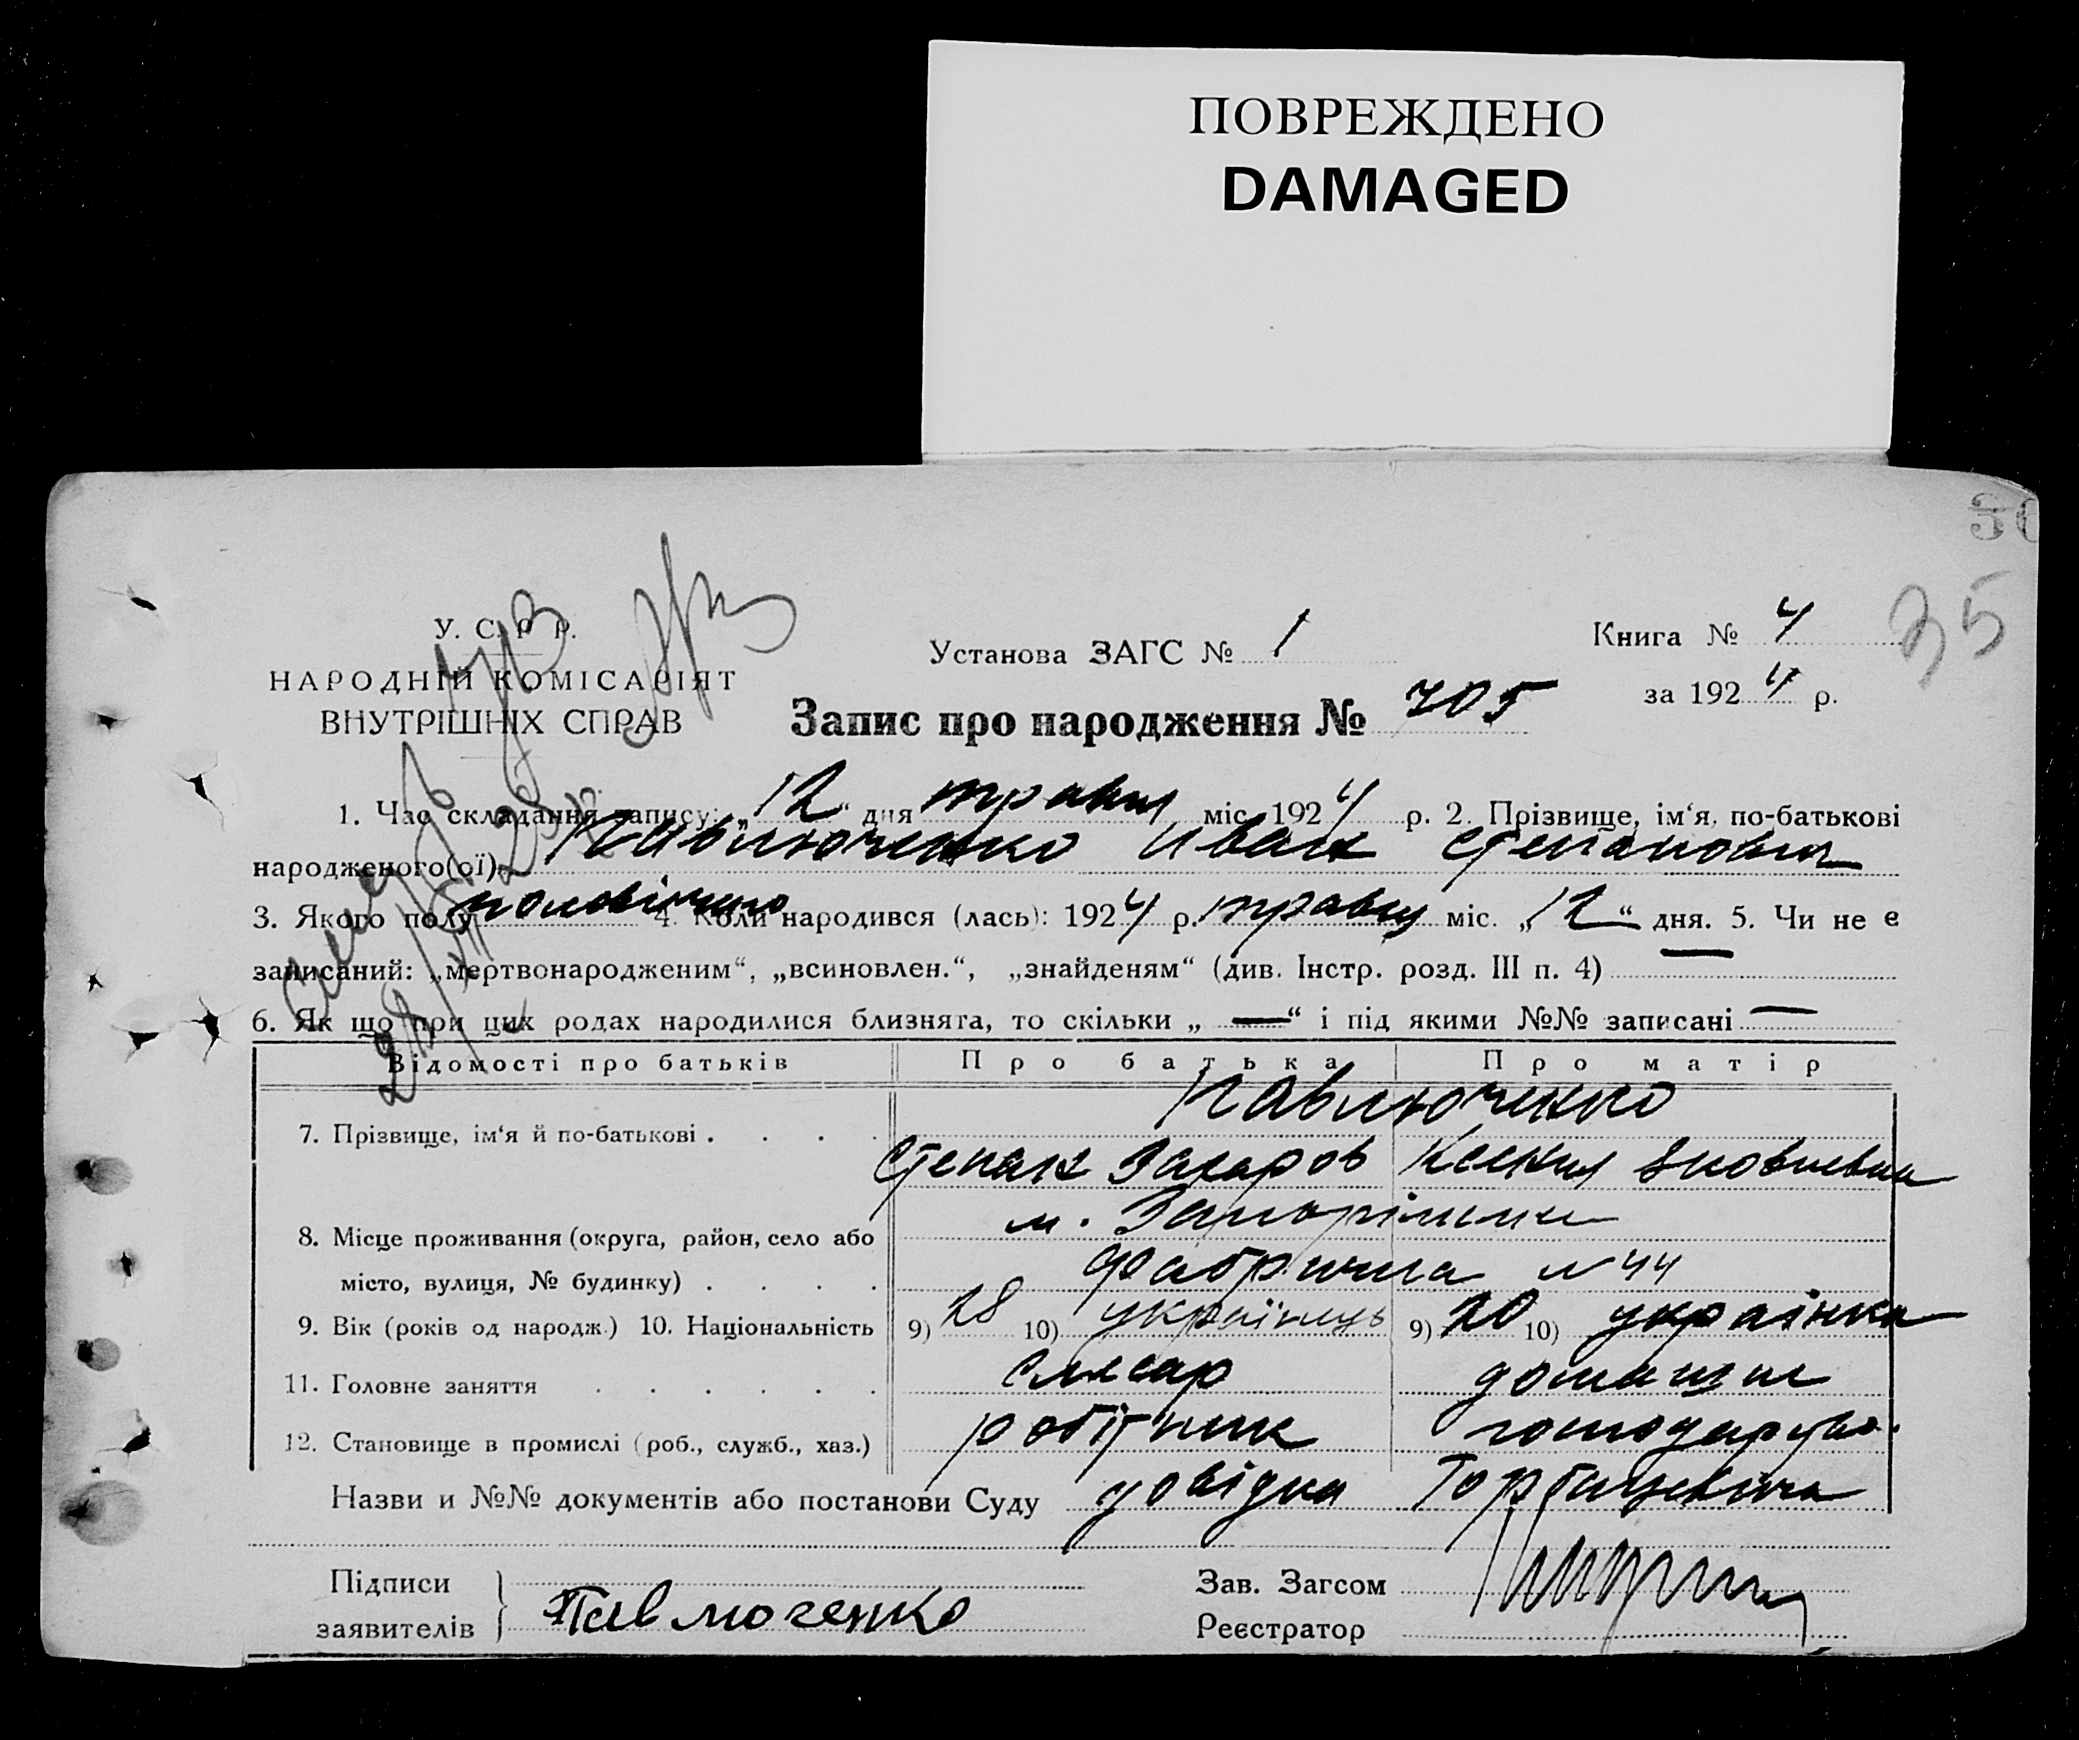 ПОВРЕЖДЕНО
DAMAGED
35
У. С. Р. Р.
НАРОДНІЙ КОМІСАРІЯТ
ВНУТРІШНІХ СПРАВ
Установа ЗАГС № 1
Книга № 4
за 1924 р.
Запис про народження № 705
1. Час складання запису: „12“ дня травня міс. 1924 р. 2. Прізвище, ім‘я, по-батькові
народженого(ої) Павлюченко Иван Степанович
3. Якого полу 4. Коли народився (лась): 1924 р. травня міс. „12“ дня. 5. Чи не є
записаний: „мертвонародженим“, „всиновлен.“, „знайденям“ (див. Інстр. розд. III п. 4) —
6. Як що при цих родах народилися близнята, то скільки „—“ і під якими №№ записані —
Відомості про батьків Про батька Про матір
7. Прізвище, ім‘я й по-батькові . . . . Павлюченко
Степан Захаров Ксения Яковлевна
8. Місце проживання (округа, район, село або м. Запоріжжя
місто, вулиця, № будинку) . . . . Фабрична № 44
9. Вік (років од народж.) 10. Національність 9) 28 10) українець 9) 20 10) українка
11. Головне заняття . . . . . . слюсар домашнє
12. Становище в промислі (роб., служб., хаз.) робітник господарство.
Назви и №№ документів або постанови Суду довідка
Підписи
заявителів Павлюченко
Зав. Загсом
Реєстратор